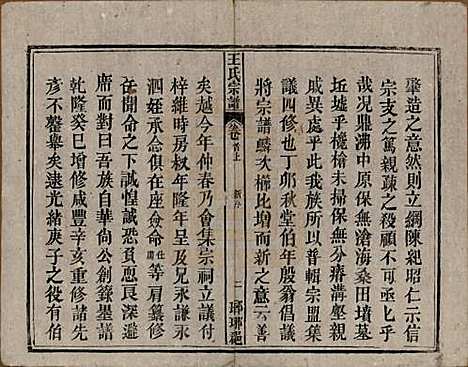 肇造之意然則立綱陳紀昭仁示信
宗支之篤親疎之殺顧不可亟乎
哉况鼎沸中原保無滄海桑田墳墓
坵墟乎欃槍未掃保無分瘠溝壑親
戚異處乎此我族所以普輯宗盟集
議四修也丁夘秋堂伯年殷翁倡議
將宗譜鱗次櫛比增而新之意云善
王氏宗譜
卷首上
新序
二
瑯琊郡
矣越今年仲春乃會集宗祠立議付
梓維時房叔年隆年呈及兄永濟興
泗姪業念俱在座僉命仕膺等肩纂修
任聞命之下誠惶誠恐懇艮深避
席而對曰吾族自華尚公創錄墨譜
乾隆癸巳增修咸豐辛亥重修諸先
彥不罄舉矣逮光緒庚子之役有伯